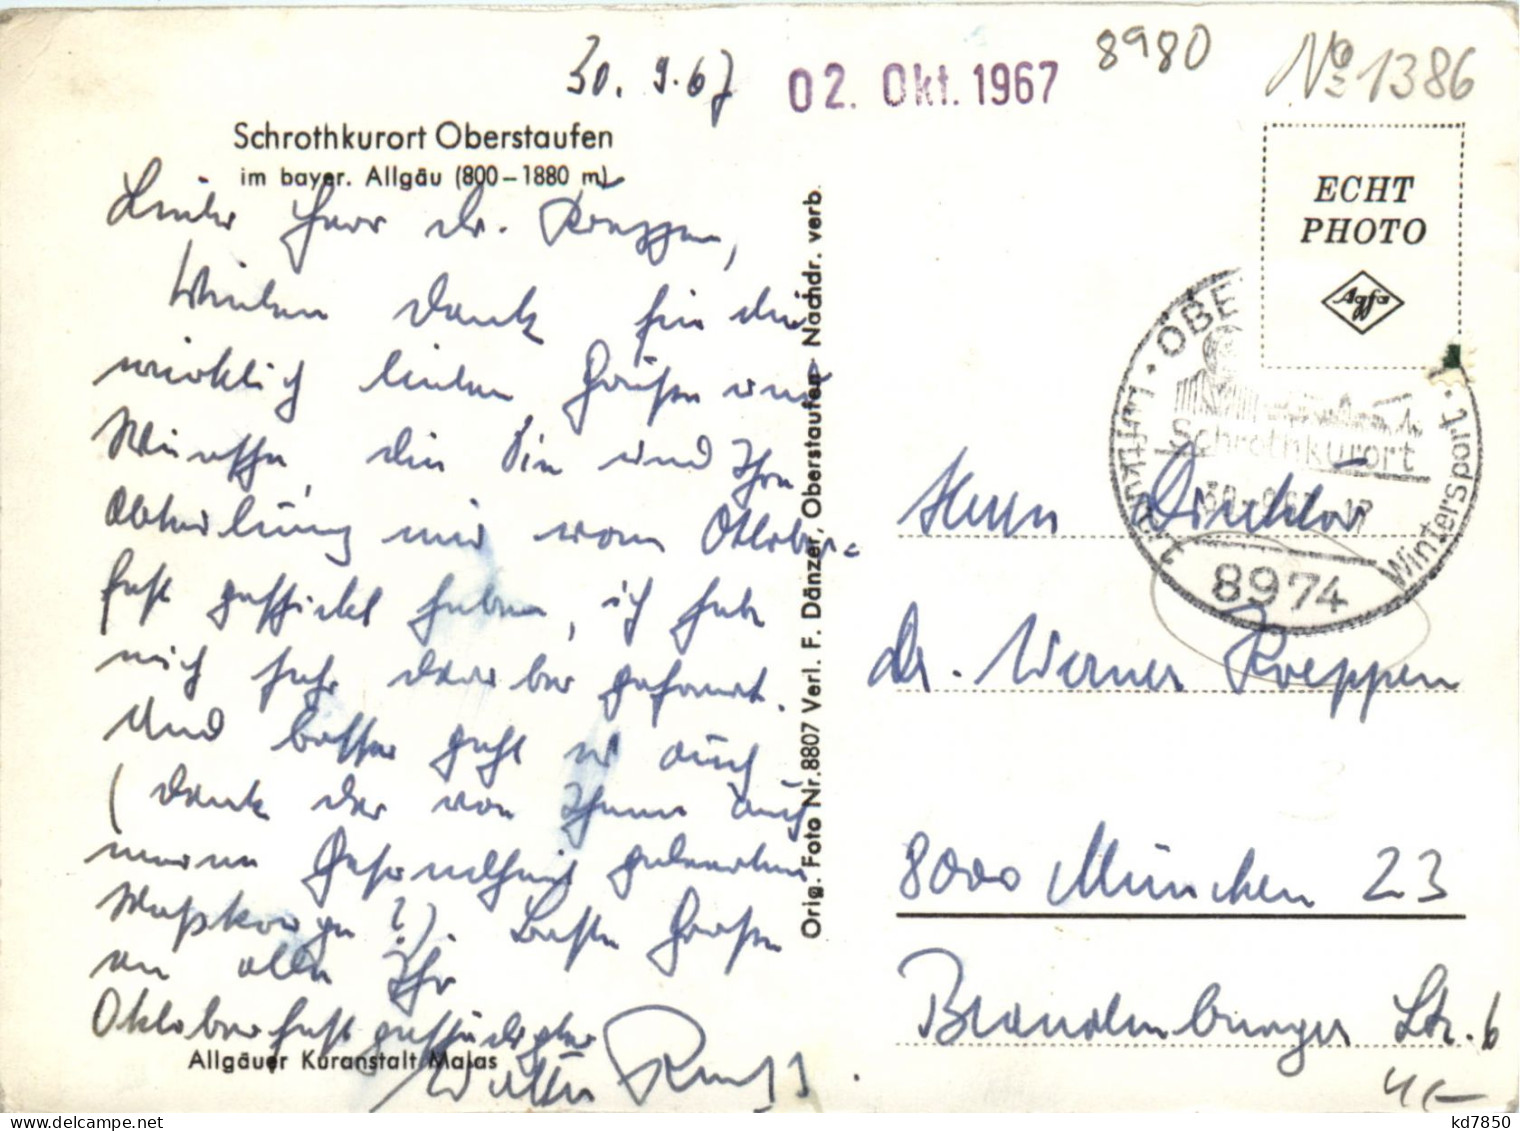 30. 9. 67
02. Okt. 1967
8980
No 1386
Schrothkurort Oberstaufen
im bayer. Allgäu (800–1880 m)
Lieber Herr Dr. Koeppen,
Vielen Dank für die
wirklich lieben Grüße und
Wünsche, die Sie und Ihre
Abteilung mir vom Oktober=
fest geschickt haben, ich habe
mich sehr darüber gefreut.
Und besser geht es auch
(dank der von Ihnen auf
meine Gesundheit geleerten
Maßkrüge?). Beste Grüße
an alle Ihr
Oktoberfestgeschädigter
Walter
Allgäuer Kuranstalt Malas
Orig. Foto Nr. 8807 Verl. F. Dänzer, Oberstaufen - Nachdr. verb.
ECHT
PHOTO
Agfa
Luftkurort · OBE
Wintersport ·
Schrothkurort
30.-9.67.-17
8974
Herrn Direktor
Dr. Werner Koeppen
8000 München 23
Brandenburger Str. 6
4,-
kd7850